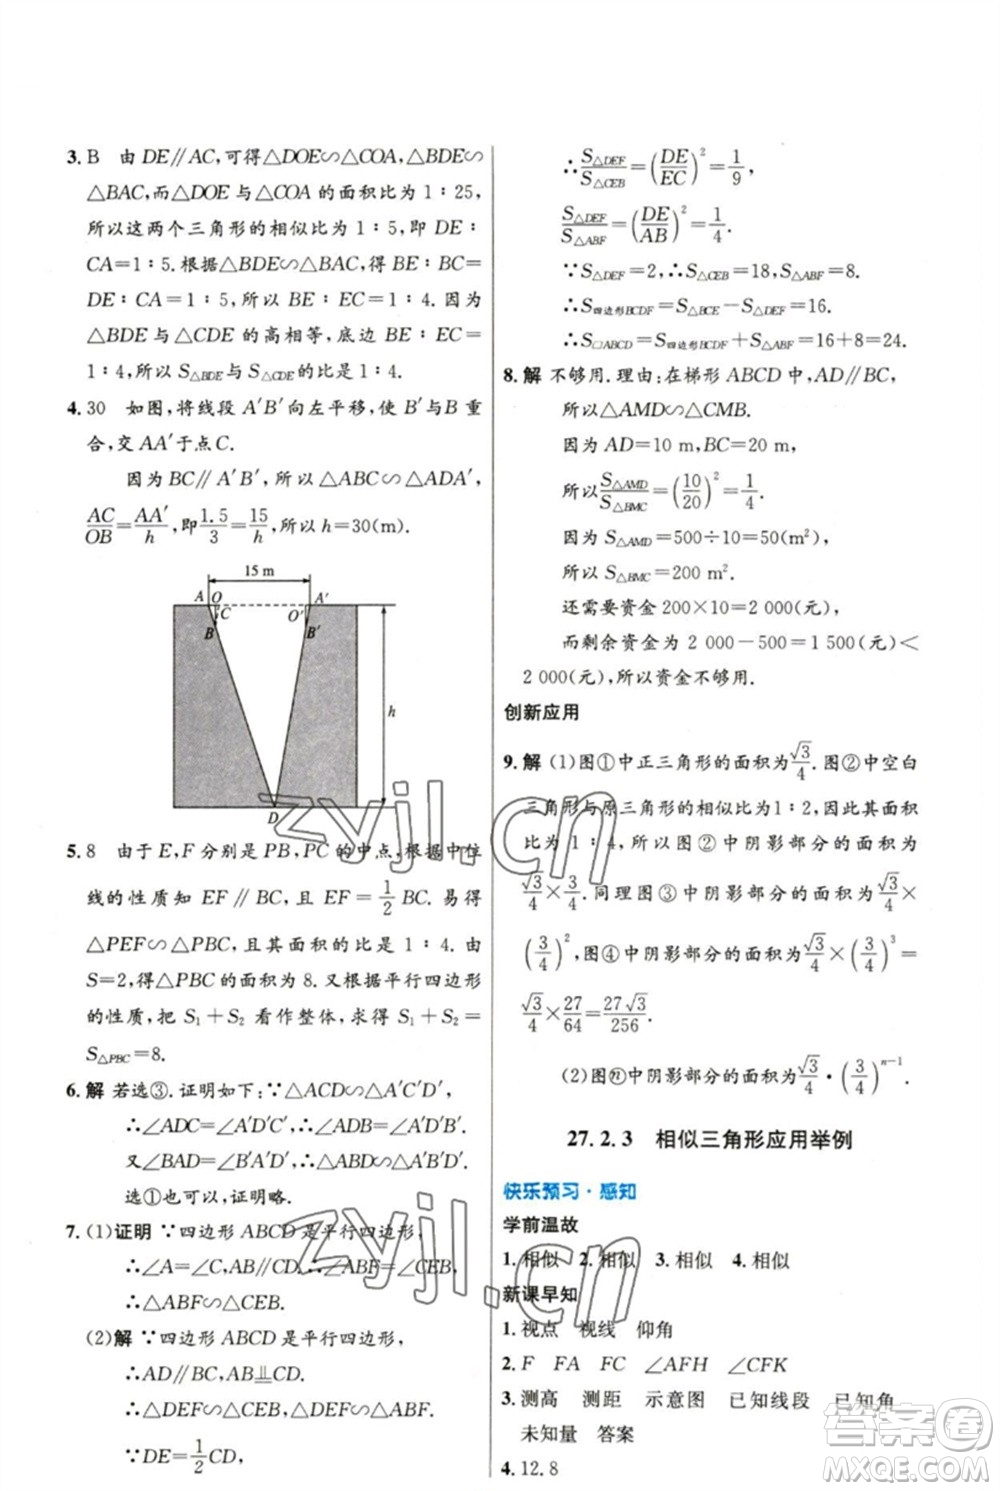 3. B 由 DE∥AC,可得△DOE∽△COA,△BDE∽
△BAC,而△DOE 与△COA 的面积比为 1∶25,
所以这两个三角形的相似比为 1∶5,即 DE∶
CA=1∶5.根据△BDE∽△BAC,得 BE∶BC=
DE∶CA=1∶5,所以 BE∶EC=1∶4.因为
△BDE 与△CDE 的高相等,底边 BE∶EC=
1∶4,所以 S△BDE与 S△CDE的比是 1∶4.
4. 30 如图,将线段 A′B′向左平移,使 B′与B 重
合,交 AA′于点C.
因为 BC∥A′B′,所以△ABC∽△ADA′,
AC/OB=AA′/h,即1.5/3=15/h,所以 h=30(m).
15 m
A O A′
C O′
B B′
h
D
5. 8 由于 E,F 分别是 PB,PC 的中点,根据中位
线的性质知 EF∥BC,且 EF=1/2 BC,易得
△PEF∽△PBC,且其面积的比是 1∶4.由
S=2,得△PBC 的面积为 8.又根据平行四边形
的性质,把 S₁+S₂ 看作整体,求得 S₁+S₂=
S△PBC=8.
6. 解 若选③.证明如下:∵△ACD∽△A′C′D′,
∴∠ADC=∠A′D′C′,∴∠ADB=∠A′D′B′.
又∠BAD=∠B′A′D′,∴△ABD∽△A′B′D′.
选①也可以,证明略.
7. (1)证明 ∵四边形 ABCD 是平行四边形,
∴∠A=∠C,AB∥CD,∴∠ABF=∠CEB,
∴△ABF∽△CEB.
(2)解 ∵四边形 ABCD 是平行四边形,
∴AD∥BC,AB⫫CD.
∴△DEF∽△CEB,△DEF∽△ABF.
∵DE=1/2 CD,
∴S△DEF/S△CEB=(DE/EC)²=1/9,
S△DEF/S△ABF=(DE/AB)²=1/4.
∵S△DEF=2,∴S△CEB=18,S△ABF=8.
∴S四边形BCDF=S△BCE−S△DEF=16.
∴S□ABCD=S四边形BCDF+S△ABF=16+8=24.
8. 解 不够用.理由:在梯形 ABCD 中,AD∥BC,
所以△AMD∽△CMB.
因为 AD=10 m,BC=20 m,
所以S△AMD/S△BMC=(10/20)²=1/4.
因为 S△AMD=500÷10=50(m²),
所以 S△BMC=200 m².
还需要资金 200×10=2 000(元),
而剩余资金为 2 000−500=1 500(元)<
2 000(元),所以资金不够用.
创新应用
9. 解 (1)图①中正三角形的面积为√3/4.图②中空白
三角形与原三角形的相似比为 1∶2,因此其面积
比为 1∶4,所以图②中阴影部分的面积为
√3/4×3/4.同理图③中阴影部分的面积为√3/4×
(3/4)²,图④中阴影部分的面积为√3/4×(3/4)³=
√3/4×27/64=27√3/256.
(2)图ⓝ中阴影部分的面积为√3/4·(3/4)ⁿ⁻¹.
27.2.3 相似三角形应用举例
快乐预习·感知
学前温故
1. 相似 2. 相似 3. 相似 4. 相似
新课早知
1. 视点 视线 仰角
2. F FA FC ∠AFH ∠CFK
3. 测高 测距 示意图 已知线段 已知角
未知量 答案
4. 12.8
zyjl.cn
zyjl.cn
答案圈
MXQE.COM